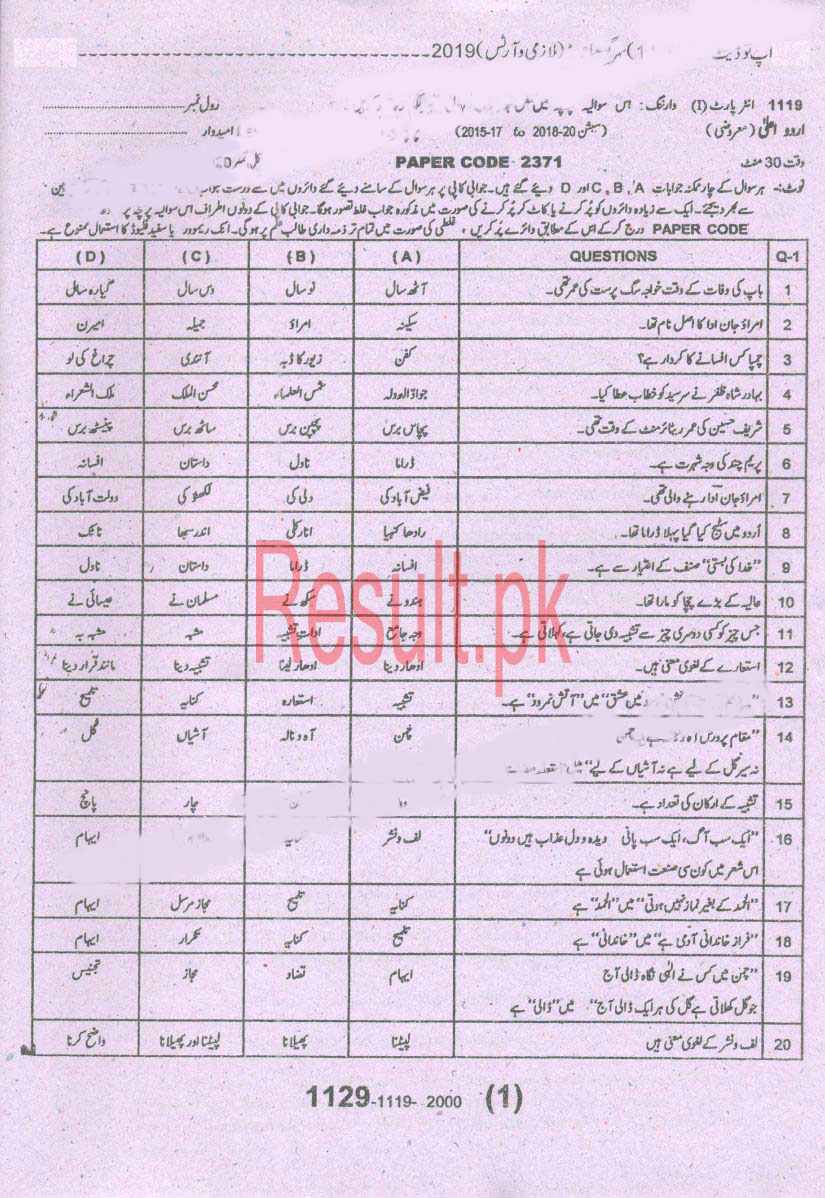 اپ ٹو ڈیٹ (لازمی و آرٹس) 2019
1119 انٹر پارٹ (I) وارننگ: اس سوالیہ رول نمبر
اردو اعلیٰ (معروضی) (سیشن 2015-17 to 2018-20) امیدوار
وقت 30 منٹ PAPER CODE 2371 کل نمبر 20
نوٹ:- ہر سوال کے چار ممکنہ جوابات A, B, C اور D دیئے گئے ہیں۔ جوابی کاپی پر ہر سوال کے سامنے دیئے گئے دائروں میں سے درست جواب
سے بھر دیجئے۔ ایک سے زیادہ دائروں کو پُر کرنے یا کاٹ کر پُر کرنے کی صورت میں مذکورہ جواب غلط تصور ہوگا۔ جوابی کاپی کے دونوں اطراف اس سوالیہ پرچہ پر
PAPER CODE درج کر کے اس کے مطابق دائرے پُر کریں، غلطی کی صورت میں تمام تر ذمہ داری طالب علم پر ہوگی۔ انک ریموور یا سفید فلیوڈ کا استعمال ممنوع ہے۔
Q-1 QUESTIONS (A) (B) (C) (D)
1 باپ کی وفات کے وقت خواجہ سگ پرست کی عمر تھی۔ آٹھ سال نو سال دس سال گیارہ سال
2 امراؤ جان ادا کا اصل نام تھا۔ سکینہ امراؤ جمیلہ امیرن
3 چمپا کس افسانے کا کردار ہے؟ کفن زیور کا ڈبہ آنندی چراغ کی لو
4 بہادر شاہ ظفر نے سرسید کو خطاب عطا کیا۔ جواد الدولہ شمس العلماء محسن الملک ملک الشعراء
5 شریف حسین کی عمر ریٹائرمنٹ کے وقت تھی۔ پچاس برس پچپن برس ساٹھ برس پینسٹھ برس
6 پریم چند کی وجہ شہرت ہے۔ ڈراما ناول داستان افسانہ
7 امراؤ جان ادا رہنے والی تھی۔ فیض آباد کی دلی کی لکھنؤ کی دولت آباد کی
8 اُردو میں سٹیج کیا گیا پہلا ڈراما تھا۔ رادھا کنہیا انارکلی اندر سبھا ناٹک
9 "خدا کی بستی" صنف کے اعتبار سے ہے۔ افسانہ ڈراما داستان ناول
10 عالیہ کے بڑے چچا کو مارا تھا۔ ہندو نے سکھ نے مسلمان نے عیسائی نے
11 جس چیز کو کسی دوسری چیز سے تشبیہ دی جاتی ہے، کہلاتی ہے۔ وجہ جامع ادات تشبیہ مشبہ مشبہ بہ
12 استعارے کے لغوی معنی ہیں۔ ادھار دینا ادھار لینا تشبیہ دینا مانند قرار دینا
13 میں عشق" میں "آتش نمرود" ہے۔ تشبیہ استعارہ کنایہ تلمیح
14 "مقام پرورش آہ چمن چمن آہ و نالہ آشیاں گل
نہ سیر گل کے لیے ہے نہ آشیاں کے لیے"
15 تشبیہ کے ارکان کی تعداد ہے۔ چار پانچ
16 "ایک سب آگ، ایک سب پانی دیدہ و دل عذاب ہیں دونوں" لف و نشر ایہام
اس شعر میں کون سی صنعت استعمال ہوئی ہے
17 "الحمد کے بغیر نماز نہیں ہوتی" میں "الحمد" ہے کنایہ تلمیح مجاز مرسل ایہام
18 "فراز خاندانی آدمی ہے" میں "خاندانی" ہے تلمیح کنایہ تکرار ایہام
19 "چمن میں کس نے الٰہی نگاہ ڈالی آج ایہام تضاد مجاز تجنیس
جو گل کھلاتی ہے گل کی ہر ایک ڈالی آج" میں "ڈالی" ہے
20 لف و نشر کے لغوی معنی ہیں لپیٹنا پھیلانا لپیٹنا اور پھیلانا واضح کرنا
1129-1119- 2000 (1)
Result.pk